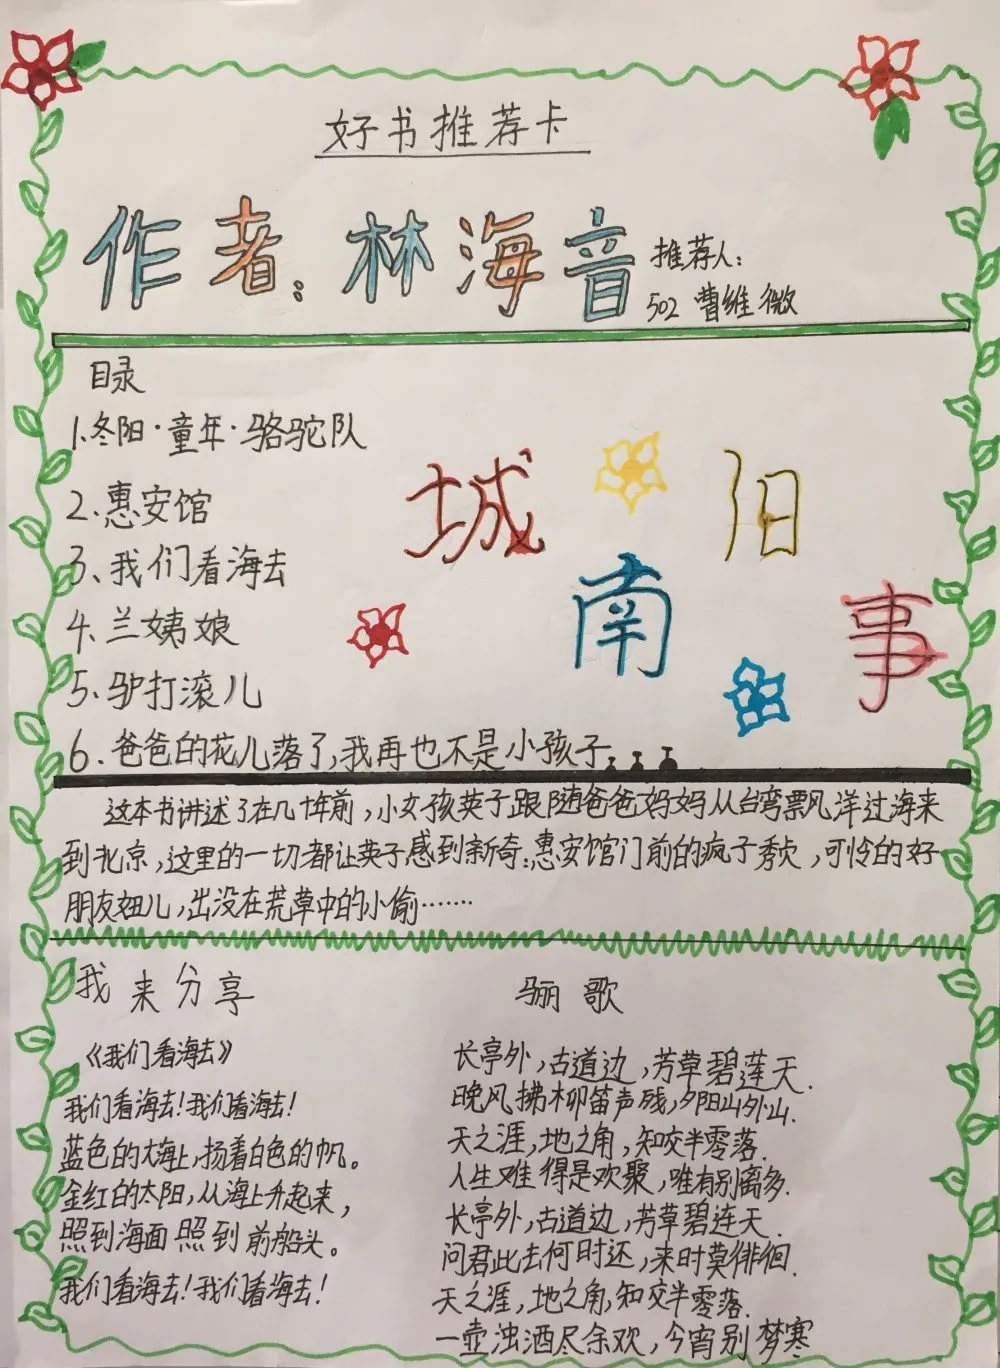 好书推荐卡
作者:林海音
推荐人:
502 曹维微
目录
1.冬阳·童年·骆驼队
2.惠安馆
3、我们看海去
4.兰姨娘
5.驴打滚儿
6.爸爸的花儿落了,我再也不是小孩子
城南旧事
这本书讲述了在几十年前,小女孩英子跟随爸爸妈妈从台湾飘洋过海来
到北京,这里的一切都让英子感到新奇:惠安馆门前的疯子秀贞,可怜的好
朋友妞儿,出没在荒草中的小偷……
我来分享
《我们看海去》
我们看海去!我们看海去!
蓝色的大海上,扬着白色的帆。
金红的太阳,从海上升起来,
照到海面照到前船头。
我们看海去!我们看海去!
骊歌
长亭外,古道边,芳草碧莲天.
晚风拂柳笛声残,夕阳山外山.
天之涯,地之角,知交半零落.
人生难得是欢聚,唯有别离多.
长亭外,古道边,芳草碧连天.
问君此去何时还,来时莫徘徊.
天之涯,地之角,知交半零落.
一壶浊酒尽余欢,今宵别梦寒